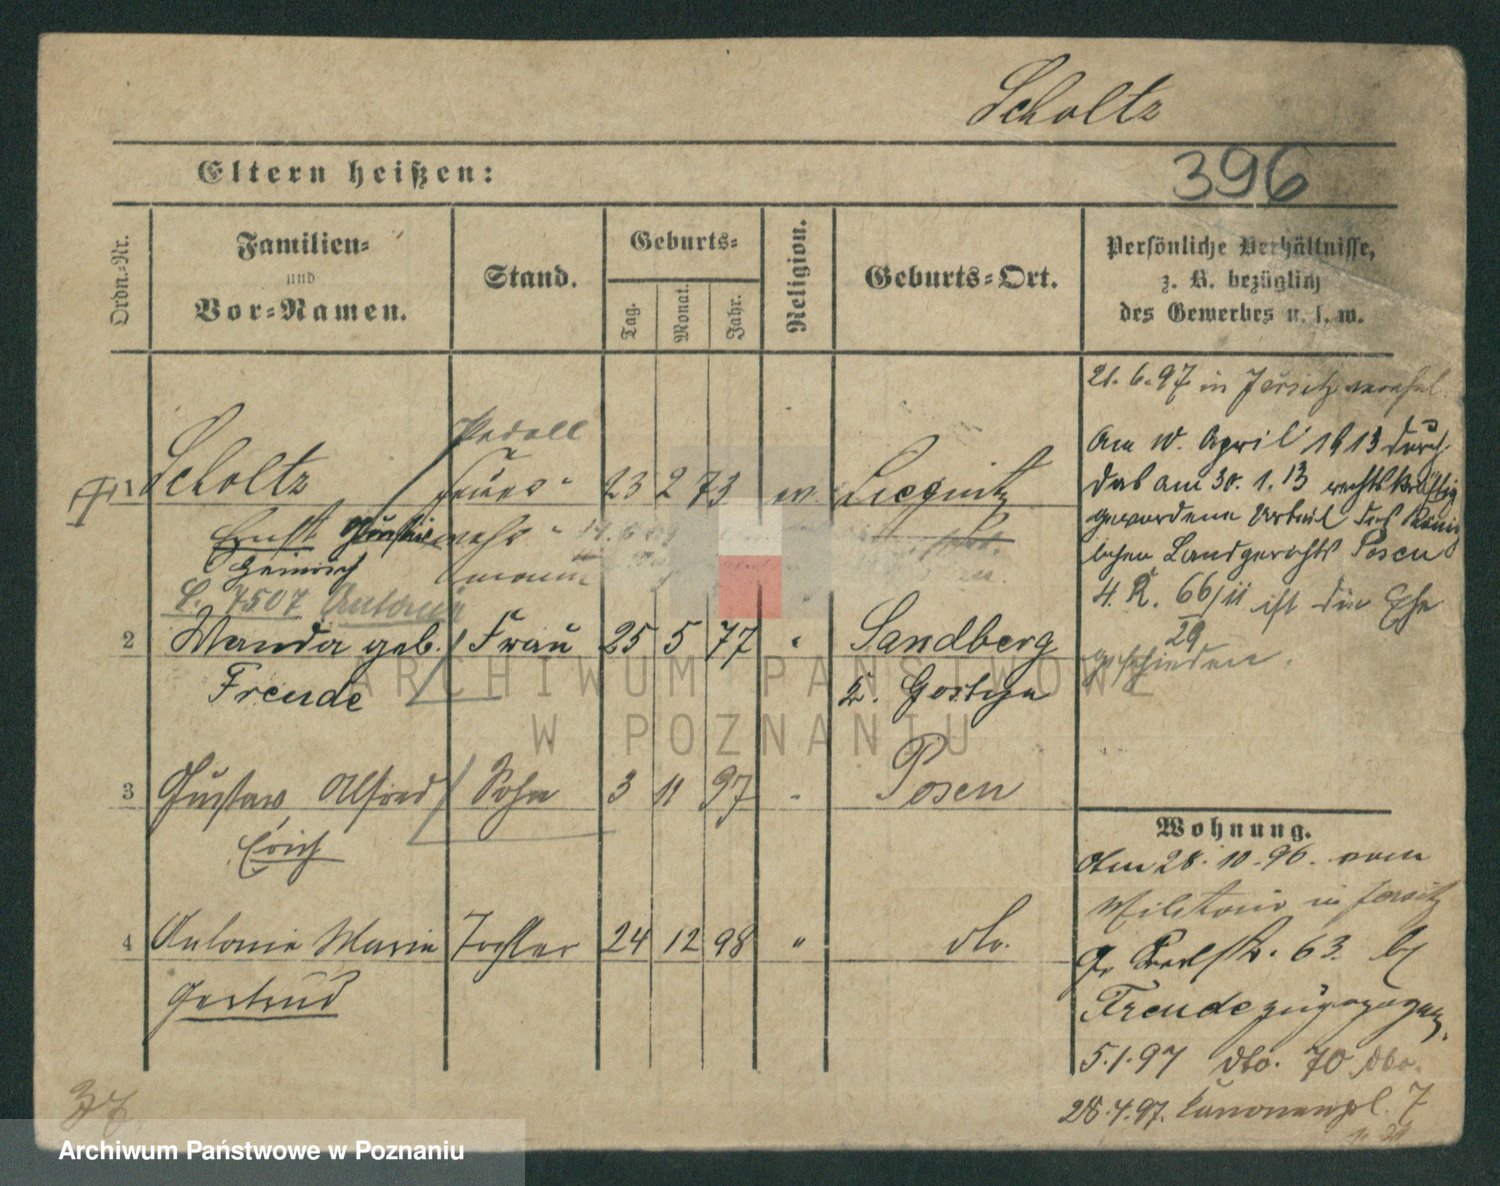 Scholtz
396
Eltern heißen:
Ordn.-Nr.
Familien-
und
Vor-Namen.
Stand.
Geburts-
Tag.
Monat.
Jahr.
Religion.
Geburts-Ort.
Persönliche Verhältnisse,
z. B. bezüglich
des Gewerbes u. s. w.
21. 6. 97 in Jersitz
Am 10. April 1913 durch
das am 30. 1. 13 rechtskräftig
gewordene Urteil des König
lichen Landgerichts Posen
4. R. 66/11 ist die Ehe
29
geschieden.
Pedell
1 Scholtz Feuer- 23 2 73 ev. Liegnitz
Ernst wehr-
Heinrich mann
7507 Antonie
2 Wanda geb. Frau 25 5 77 Sandberg
Freude K. Gostyn
3 Gustav Alfred Sohn 3 11 97 Posen
Erich
4 Antonie Marie Tochter 24 12 98 " do.
Gertrud
Wohnung.
Am 28. 10. 96. vom
Militair in Jersitz
Gr. 63. b/
Freude zugezogen.
5. 1. 97 dto. 70 dto.
28. 4. 97. Kanonenpl. 7
ARCHIWUM PAŃSTWOWE
W POZNANIU
Archiwum Państwowe w Poznaniu